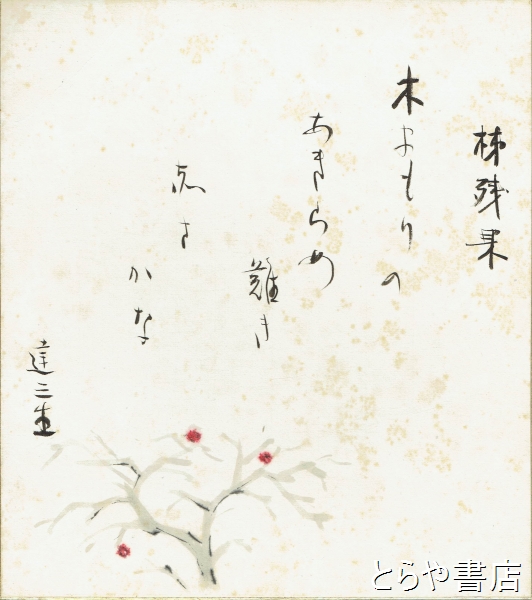 柿残果
木まもりの
あきらめ
難き
赤さ
かな
達三生
とらや書店